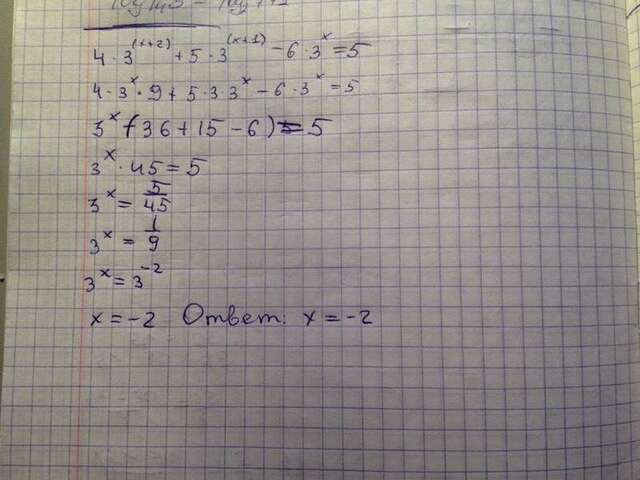 4 · 3^(x+2) + 5 · 3^(x+1) - 6 · 3^x = 5
4 · 3^x · 9 + 5 · 3 · 3^x - 6 · 3^x = 5
3^x (36 + 15 - 6) = 5
3^x · 45 = 5
3^x = 5/45
3^x = 1/9
3^x = 3^-2
x = -2 Ответ: x = -2